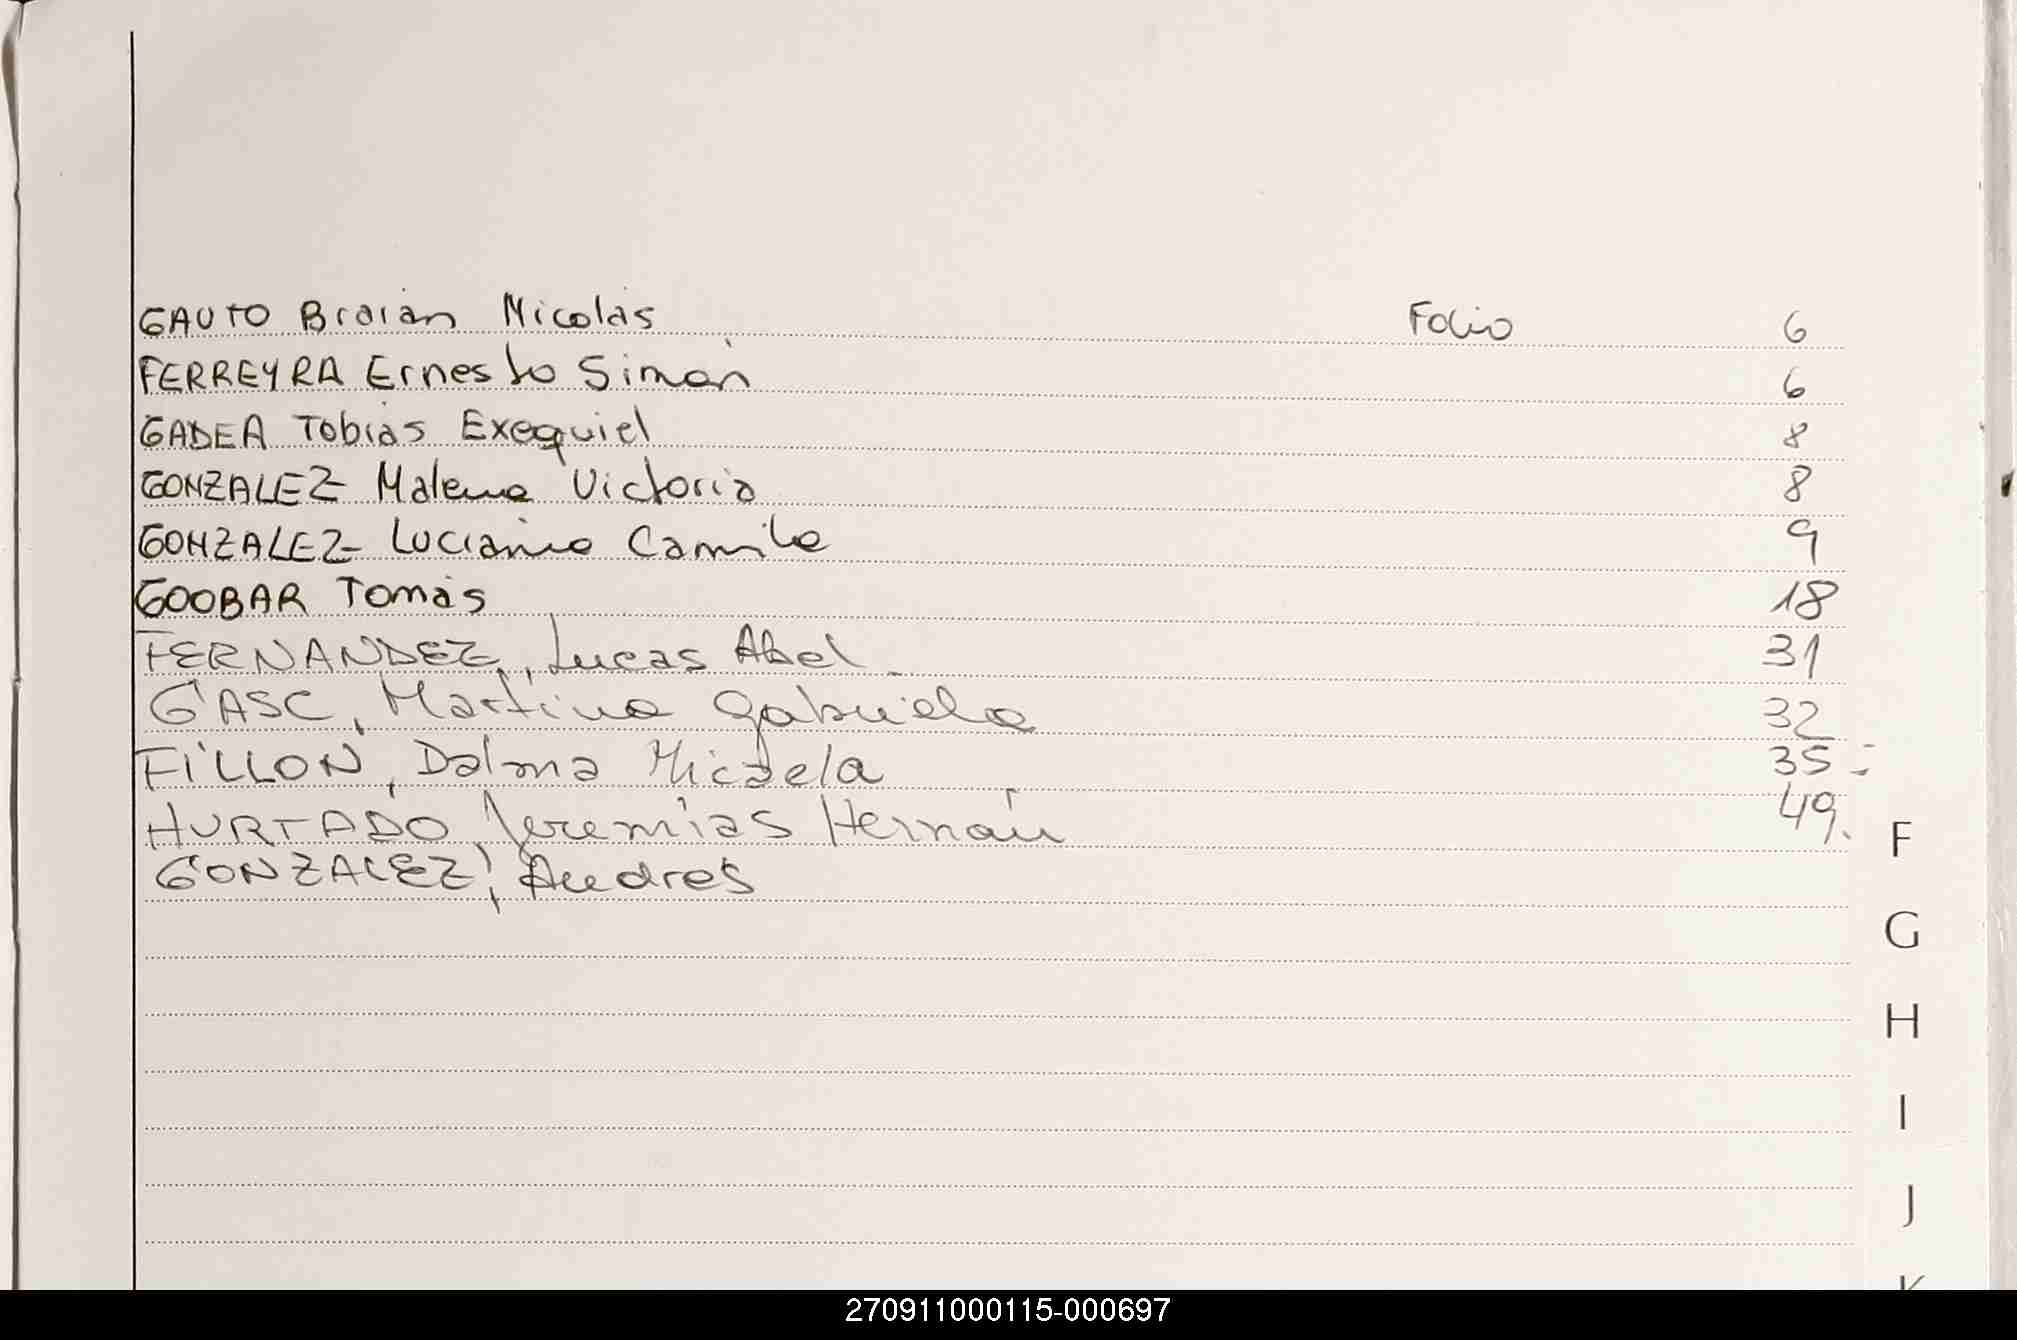 GAUTO Braian Nicolás Folio 6
FERREYRA Ernesto Simón 6
GADEA Tobías Exequiel 8
GONZALEZ Malena Victoria 8
GONZALEZ Luciano Camilo 9
GOOBAR Tomás 18
FERNANDEZ, Lucas Abel 31
GASC, Martina Gabriela 32
FILLON, Dalma Micaela 35
HURTADO, Jeremías Hernán 49.
GONZALEZ, Andres
F
G
H
I
J
K
270911000115-000697